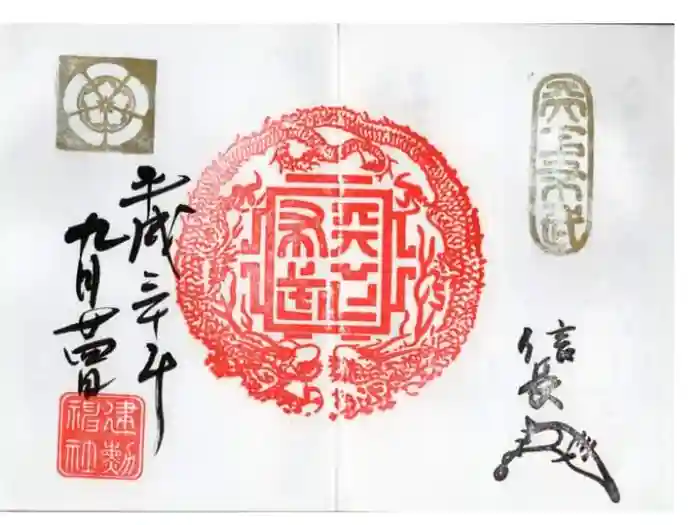 天下布武
信長
天下
布武
平成三十年
九月廿四日
建勲
神社